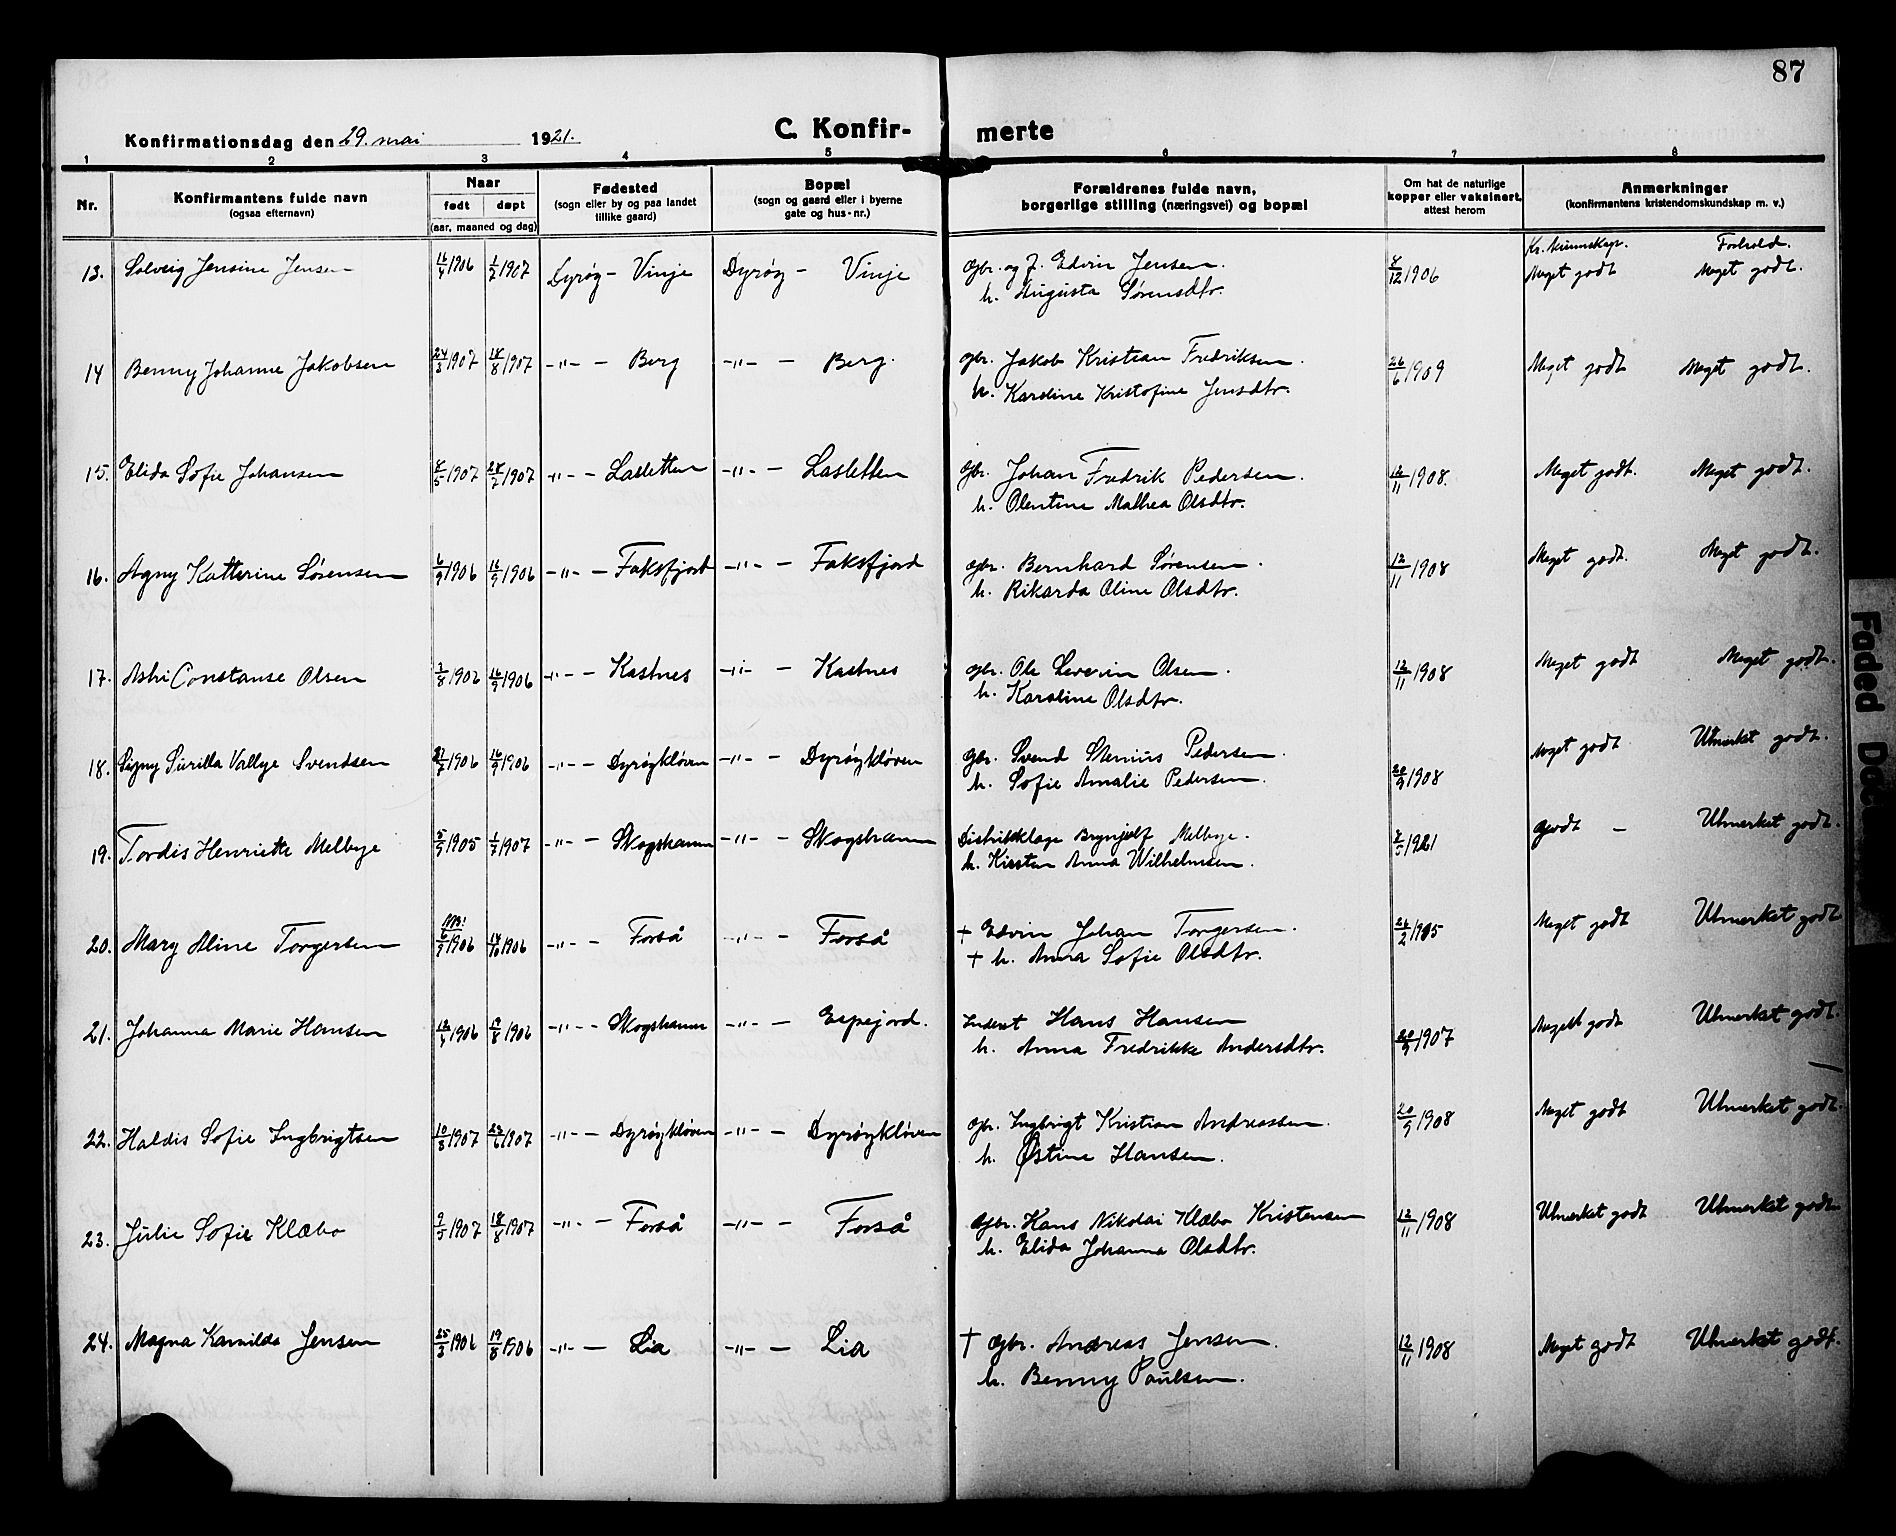 87
Konfirmationsdag den 29. mai 1921.
C. Konfir- merte
1 2 3 4 5 6 7 8
Nr.
Konfirmantens fulde navn
(ogsaa efternavn)
Naar
født døpt
(aar, maaned og dag)
Fødested
(sogn eller by og paa landet
tillike gaard)
Bopæl
(sogn og gaard eller i byerne
gate og hus-nr.)
Forældrenes fulde navn,
borgerlige stilling (næringsvei) og bopæl
Om hat de naturlige
kopper eller vaksinert,
attest herom
Anmerkninger
(konfirmantens kristendomskundskap m. v.)
Kr. kunnskap. Forhold.
13. Solveig Jensine Jensen 16/4 1906 1/2 1907 Dyrøy - Vinje Dyrøy - Vinje Gbr. og f. Edvin Jensen. 8/12 1906 Meget godt Meget godt.
h. Augusta Sørensdtr.
14 Benny Johanne Jakobsen 24/3 1907 18/8 1907 -"- - Berg -"- - Berg. Gbr. Jakob Kristian Fredriksen. 26/6 1909 Meget godt Meget godt.
h. Karoline Kristofine Jensdtr.
15. Elida Sofie Johansen 8/5 1907 28/7 1907 -"- - Lasletten -"- - Lasletten Gbr. Johan Fredrik Pedersen. 12/11 1908. Meget godt. Meget godt.
h. Olentine Mathea Olsdtr.
16. Agny Katterine Sørensen 6/9 1906 16/9 1906 -"- - Faksfjord -"- - Faksfjord Gbr. Bernhard Sørensen. 12/11 1908 Meget godt. Meget godt.
h. Rikarda Oline Olsdtr.
17. Astri Constanse Olsen /8 190 16/9 1906 -"- - Kastnes -"- - Kastnes gbr. Ole Severin Olsen. 12/11 1908 Meget godt Meget godt.
h. Karoline Olsdtr.
18. Signy Surilla Valbye Svendsen 27/7 1906 16/9 1906 -"- - Dyrøykløven -"- - Dyrøykløven Gbr. Svend Stenius Pedersen. 20/9 1908 Meget godt Utmerket godt.
h. Sofie Amalie Pedersen.
19. Tordis Henriette Melbye 5/9 1905 1/7 1907 -"- - Skogshamn -"- - Skogshamn Distriktslæge Brynjulf Melbye. /5 1921 Godt - Utmerket godt.
h. Kirsten Anna Wilhelmsen.
20. Mary Aline Torgersen 6/9 1906 14/10 1906 -"- - Forså -"- - Forså + Edvin Johan Torgersen. 26/2 1915 Meget godt Utmerket godt
+ h. Anna Sofie Olsdtr.
21. Johanna Marie Hansen 12/4 1906 19/8 1906 -"- - Skogshamn -"- - Espejord. Inderst Hans Hansen 20/9 1907 Meget godt Utmerket godt.
h. Anna Fredrikke Andersdtr.
22. Haldis Sofie Ingbrigtsen 10/3 1907 23/6 1907 -"- - Dyrøykløven -"- - Dyrøykløven Gbr. Ingbrigt Kristian Andreassen. 20/9 1908 Meget godt Utmerket godt.
h. Østine Hansen.
23. Julie Sofie Klæbo 9/5 1907 18/8 1907 -"- - Forså -"- - Forså Gbr. Hans Nikolai Klæbo Kristensen 12/11 1908 Utmerket godt Utmerket godt.
h. Elida Johanna Olsdtr.
24. Magna Kamilda Jensen 25/3 1906 19/8 1906 -"- - Lia -"- - Lia + Gbr. Andreas Jensen. 12/11 1908 Meget godt Utmerket godt.
h. Benny Paulsen.
Faded Doc